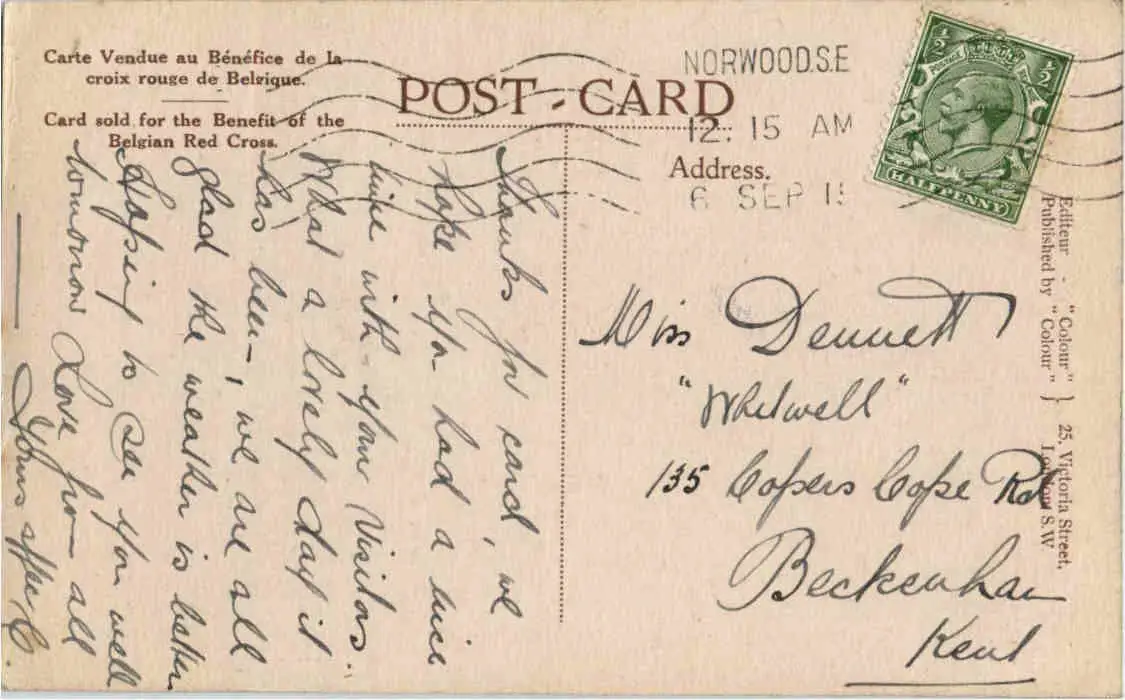 Carte Vendue au Bénéfice de la
croix rouge de Belgique.
Card sold for the Benefit of the
Belgian Red Cross.
POST - CARD
Address.
NORWOOD.S.E
12. 15 AM
6 SEP 15
½ ½
POSTAGE
HALFPENNY
Thanks for card, we
hope you had a nice
time with your Visitors.
What a lovely day it
has been—, we are all
glad the weather is better
Hoping to see you well
tomorrow Love from all
Yours affec C.
Miss Dennett
"Whitwell"
135 Copers Cope Rd
Beckenham
Kent
Editeur - "Colour" } 25, Victoria Street,
Published by "Colour" } London S.W